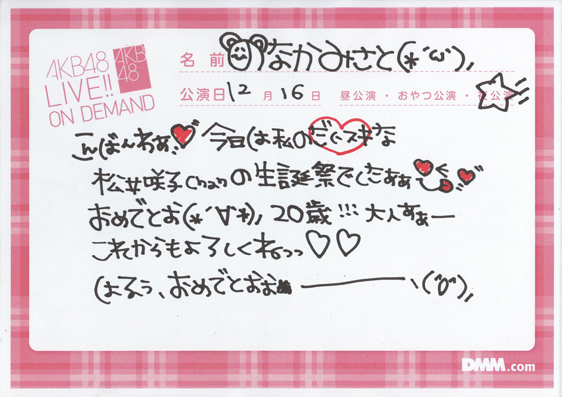 AKB48
LIVE!!
ON DEMAND
AKB
48
名前 なかみさと(*´ω`),
公演日 12月16日 昼公演・おやつ公演・夜公演
こんばんわぁ、♥ 今日は私のだいスキな
松井咲子Chanの生誕祭でしたぁぁ
おめでとお(*´∀`*), 20歳!!! 大人すぁー
これからもよろしくねっっ♡♡
はるぅ、おめでとおぉ ————、(^o^),
DMM.com